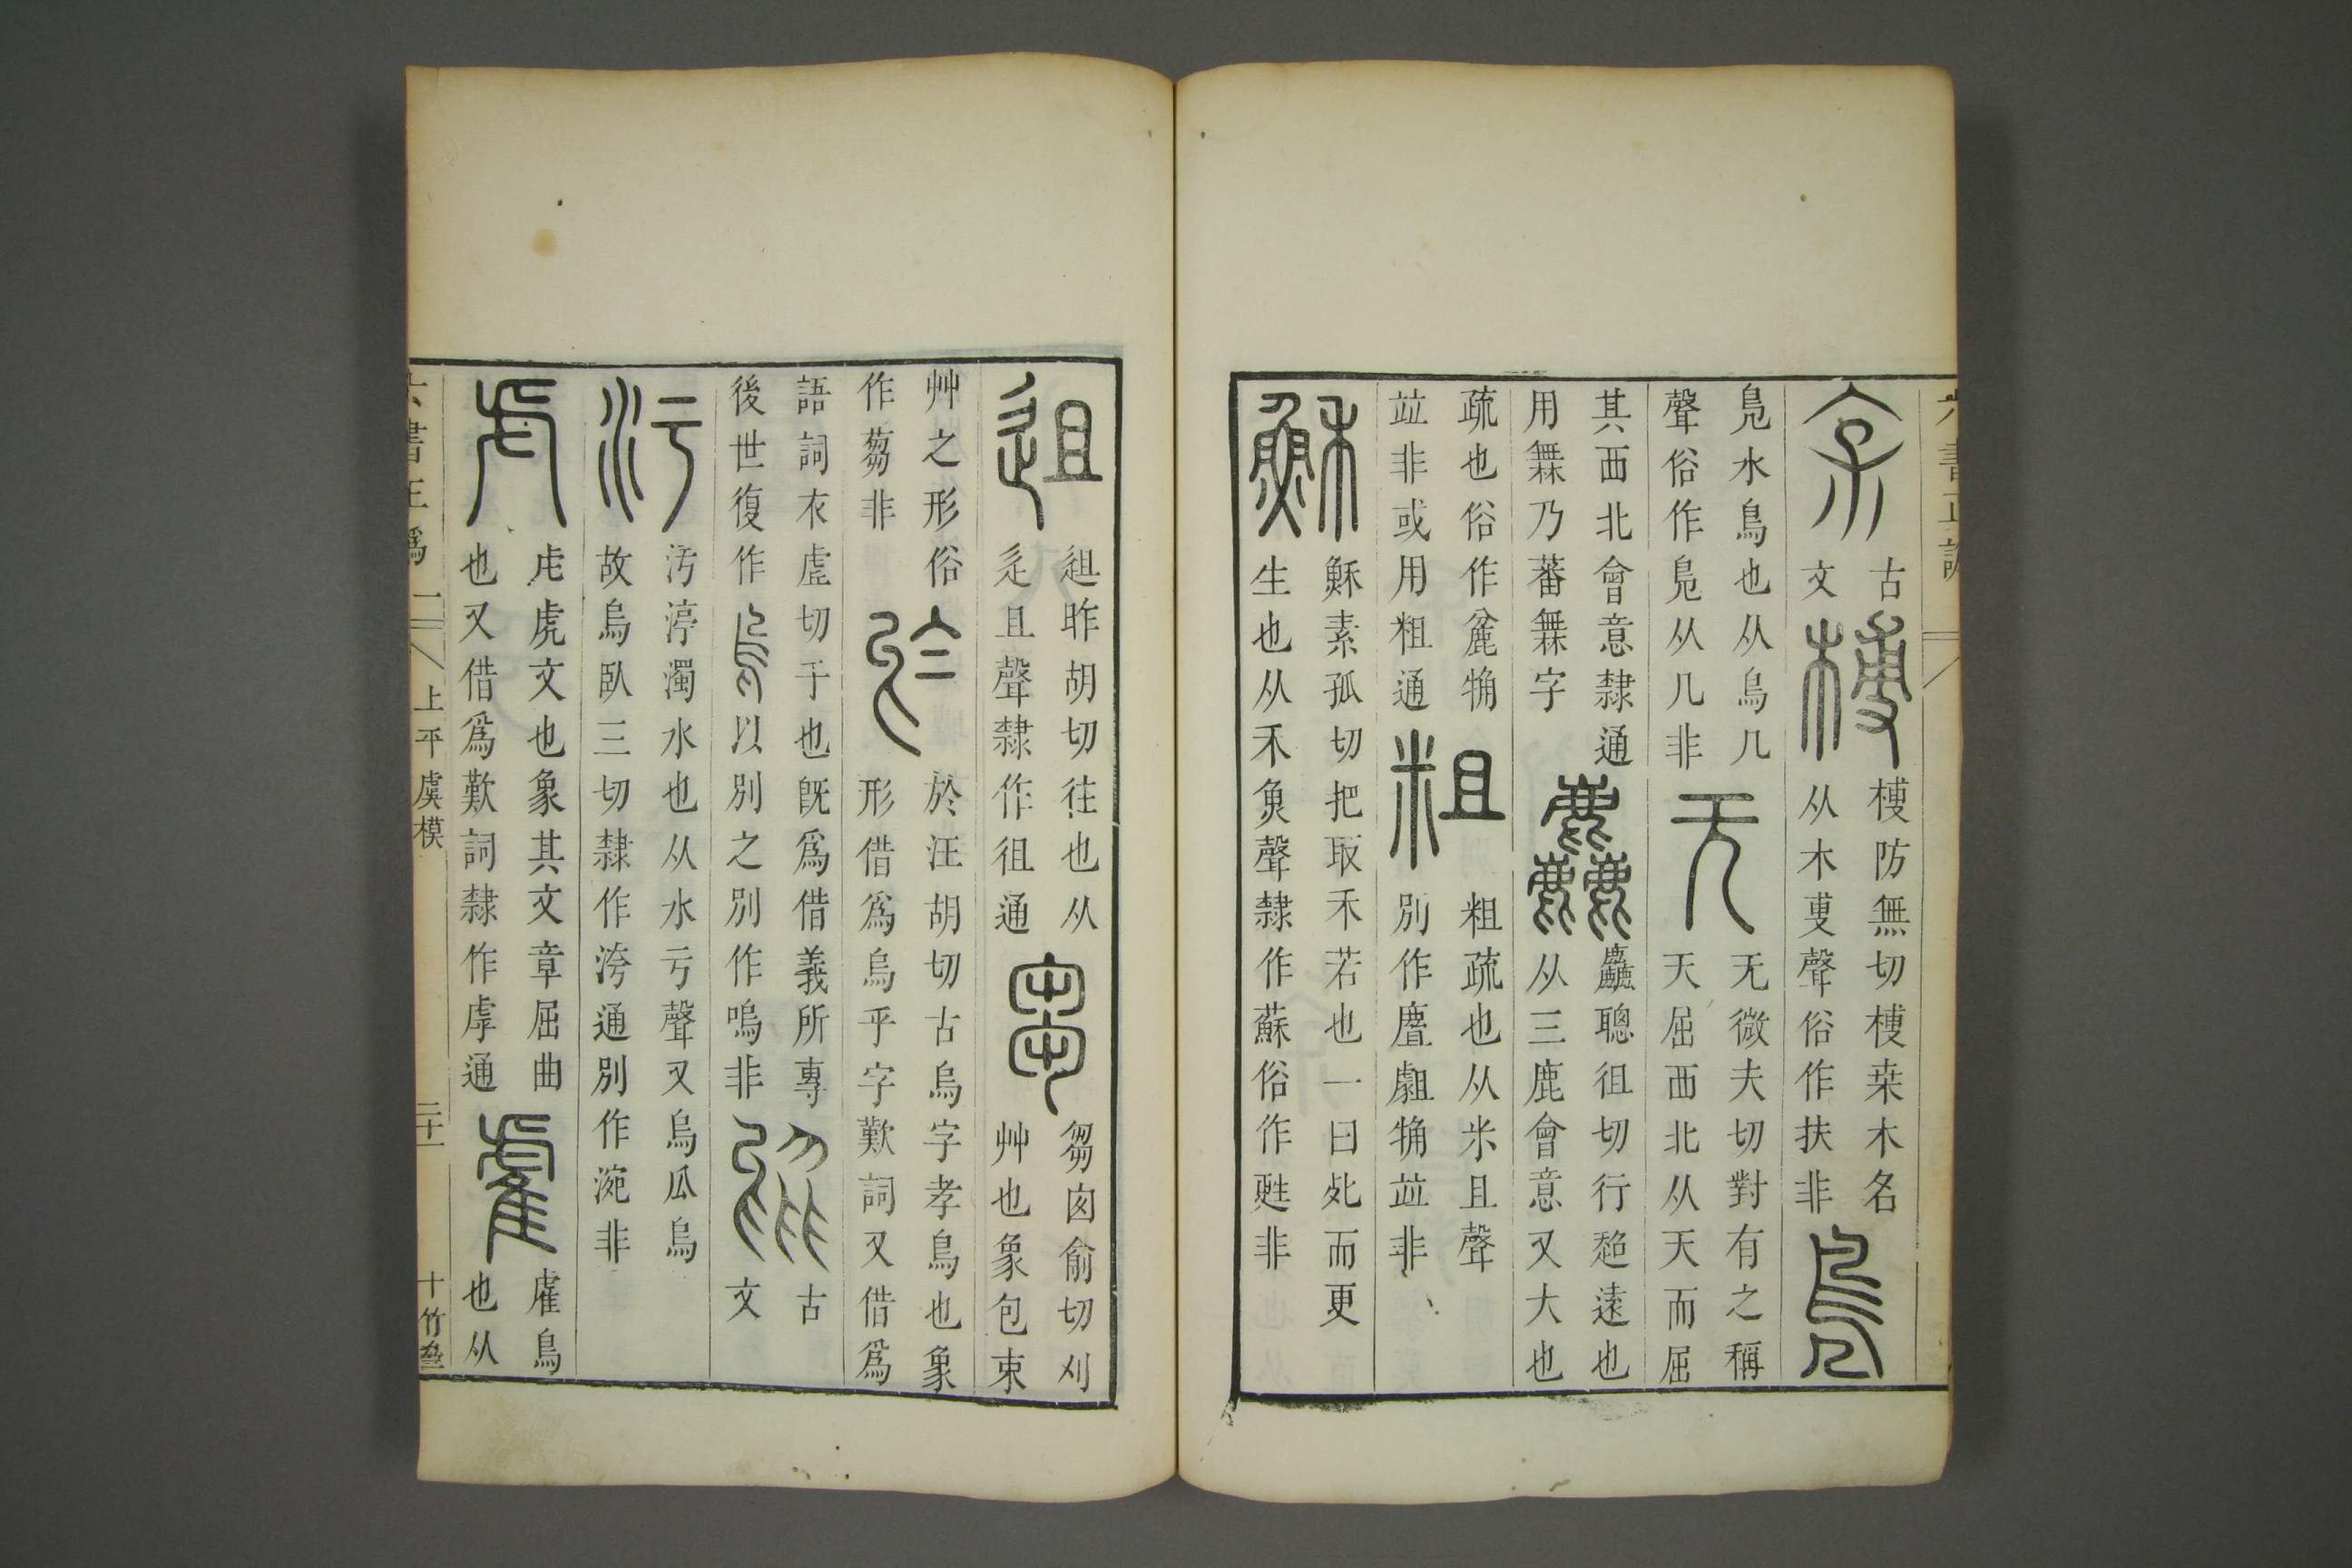 六書正譌
古
文
榑
榑防無切榑桒木名
从木尃聲俗作扶非
鳧
鳧水鳥也从鳥几
聲俗作鳬从几非
无
无微夫切對有之稱
天屈西北从天而屈
其西北會意隸通
用橆乃蕃橆字
麤
麤聰徂切行超遠也
从三鹿會意又大也
疏也俗作麄觕
竝非或用粗通
粗
粗疏也从米且聲
別作觕竝非
穌
穌素孤切把取禾若也一曰死而更
生也从禾魚聲隸作蘇俗作甦非
䢐
䢐昨胡切往也从
辵且聲隸作徂通
芻
芻囱俞切刈
艸也象包束
艸之形俗
作蒭非
於
於汪胡切古烏字孝鳥也象
形借爲烏乎字歎詞又借爲
語詞衣虛切于也旣爲借義所專
後世復作烏以別之別作嗚非
古
文
汚
汚渟濁水也从水亏聲又烏瓜烏
故烏臥三切隸作洿通別作涴非
虍
虍虎文也象其文章屈曲
也又借爲歎詞隸作虖通
雐
雐鳥
也从
六書正譌 一 上平虞模 二十一 十竹齋